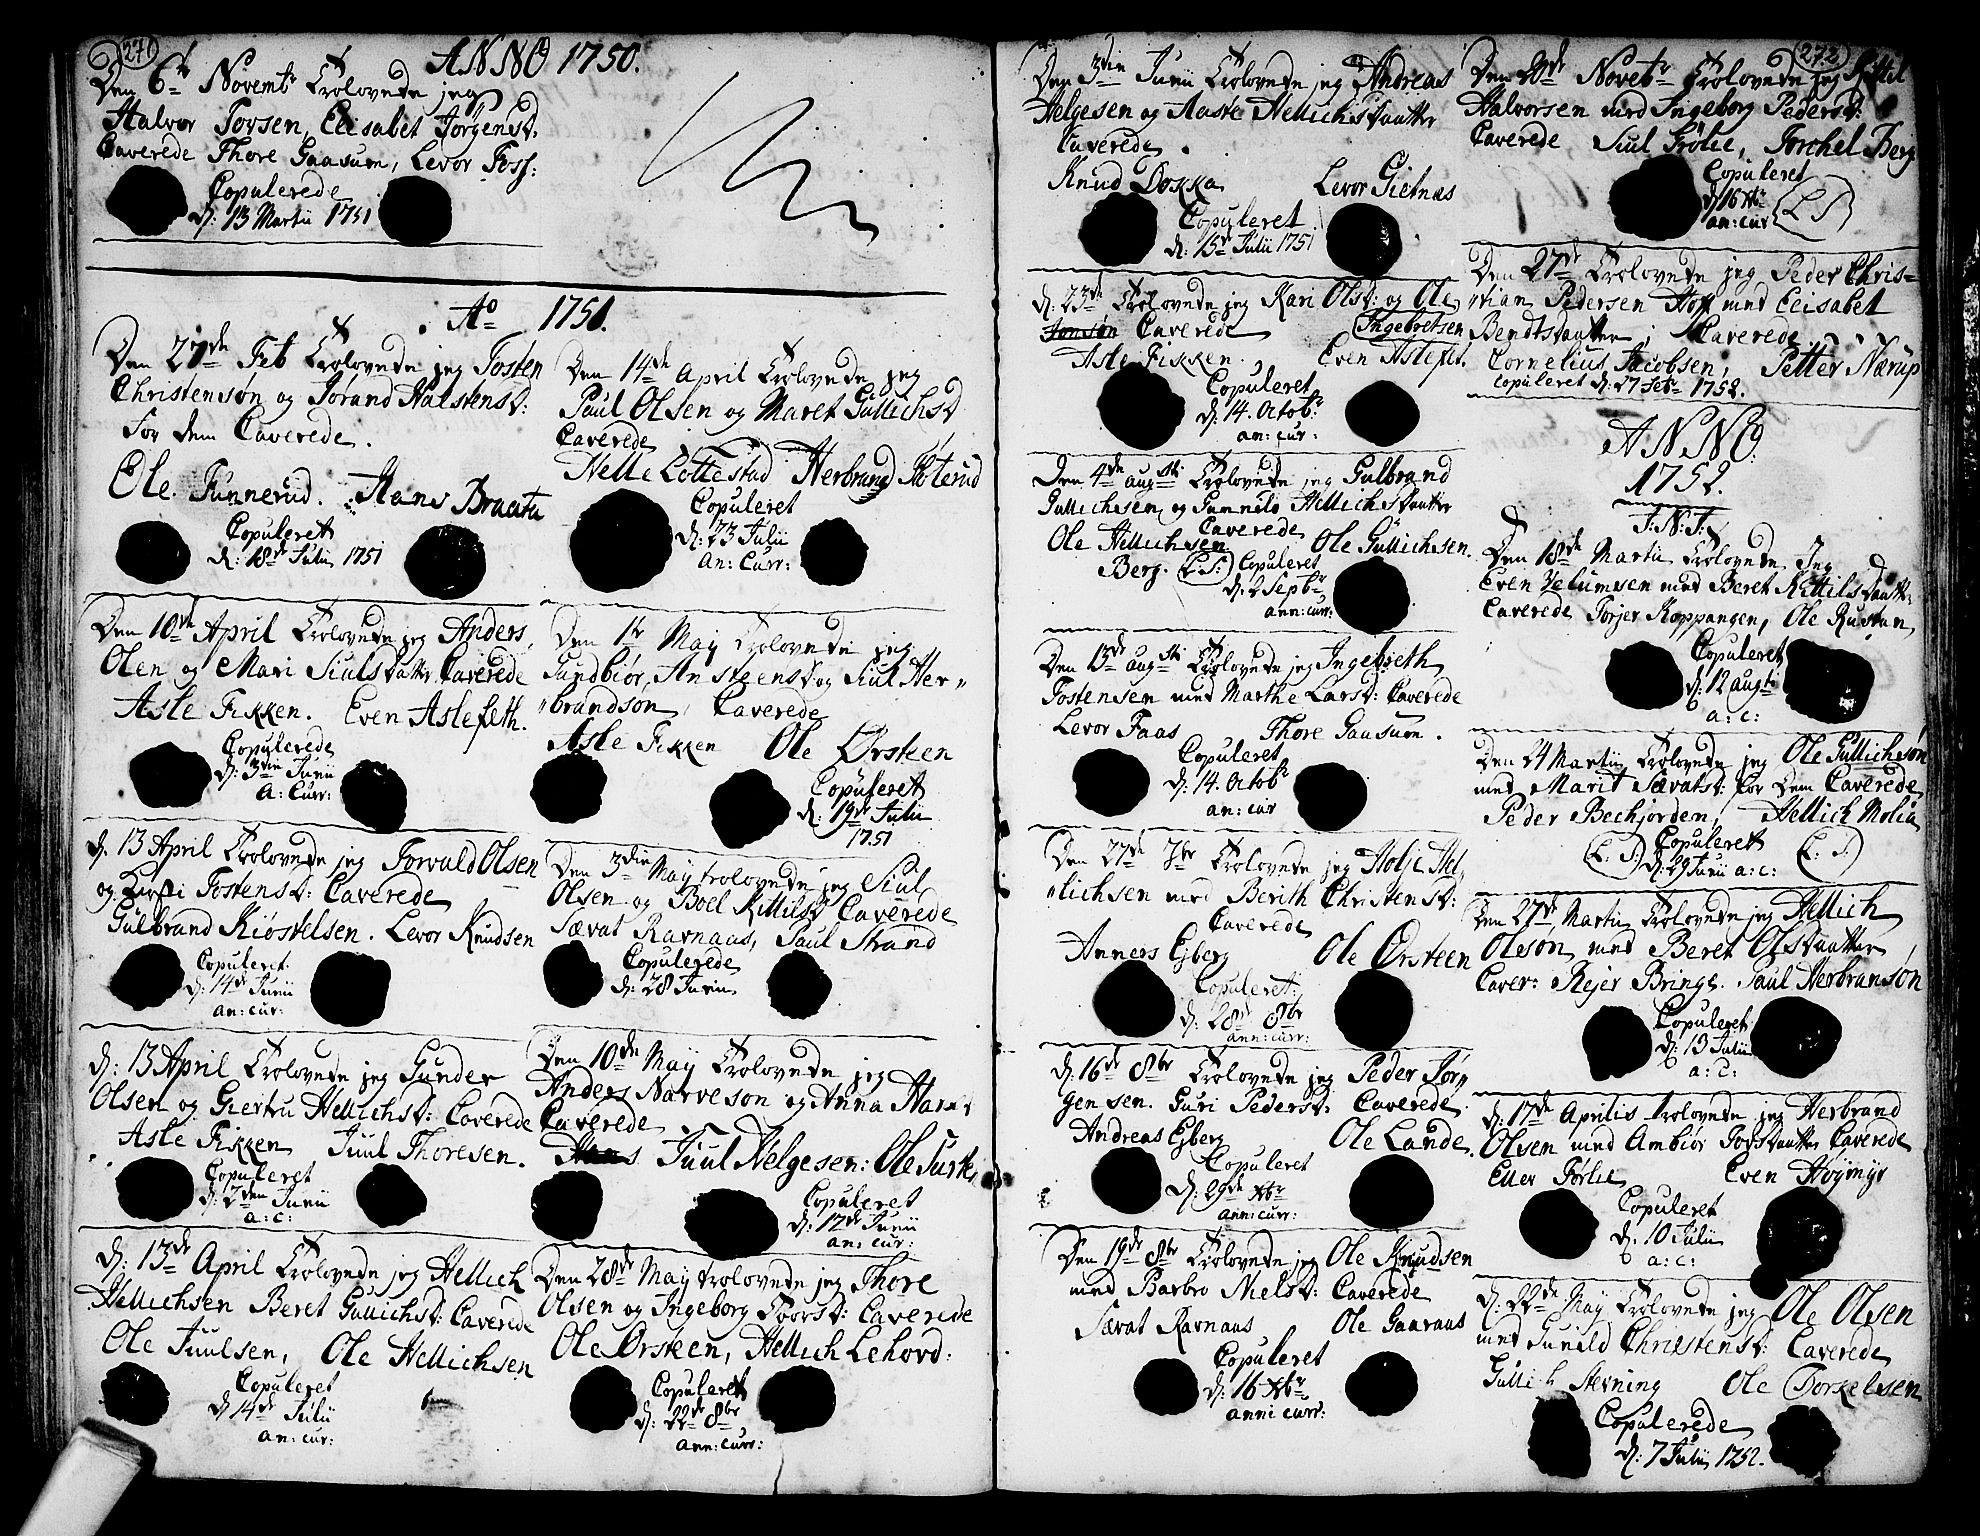 271
ANNO 1750.
Den 6te Novembr Trolovede jeg
Halvor Torsen, Elisabet Jörgensd.
Caverede Thore Gaasum, Levor Foss:
Copulerede
d: 13 Martii 1751
Ao 1751.
Den 27de Feb Trolovede jeg Tosten
Christensøn og Jörand Halstensd:
for dem Caverede.
Ole Funnerud. Hans Braata
Copuleret
d: 18de Julii 1751
Den 10de April Trolovede jeg Anders
Olen og Mari Siulsdatter Caverede
Asle Fikken. Even Aslefeth.
Copulerede
d: 3die Junii
a: Curr:
d. 13 April Trolovede jeg Torvald Olsen
og Kirsti Tostensd: Caverede
Gulbrand Kiøstelsen. Levor Knudsen
Copuleret
d: 14de Junii
an: cur:
d: 13 April Trolovede jeg Gunder
Olsen og Giertru Hellichsd: Caverede
Asle Fikken Juul Thoresen.
Copuleret
d: 2den Junii
a: c:
d: 13de April Trolovede jeg Hellich
Hellichsen Beret Gullichsd: Caverede
Ole Juulsen, Ole Hellichsen
Copuleret
d 14de Julii
an: cur:
Den 14de April Trolovede jeg
Paul Olsen og Maret Gullichsd
Caverede
Nelle Lottestad Herbrand Skøterud
Copuleret
d: 23 Julii
an: Curr:
Den 1te May Trolovede jeg
Gundbiør, Ansteensd: og Siul Her-
brandsøn, Caverede
Asle Fikken Ole Ørsteen
Copuleret
d: 19de Julii
1751
Den 3die May trolovede jeg Siul
Olsen og Boel Kittilsd Caverede
Sævat Ravnaas, Paul Strand
Copulerede
d: 28 Junii
Den 10de May Trolovede jeg
Anders Narveson og Anna
Caverede
Hans Juul Helgesen: Ole
Copuleret
d: 17de Junii
an: cur:
Den 28de May trolovede jeg Thore
Olsen og Ingeborg Toorsd: Caverede
Ole Ørsteen, Hellich Lehovd:
Copuleret
d: 22de 8br
ann: curr:
272
Den 3die Junii Trolovede jeg Andreas
Helgesen og Aaste Hellichsdaatter
Caverede.
Knud Dokka Levor Gietnæs
Copuleret
d: 15de Julii 1751
d: 23de Trolovede jeg Kari Olsd: og Ole
Jonsøn Caverede Ingebretsen
Asle Fikken. Even Aslefet.
Copuleret
d: 14. Octob:
an: cur:
Den 4de augsti Trolovede jeg Gulbrand
Gullichsen og Gunnild Hellichsdaatter
Caverede
Ole Hellichsen Ole Gullichsen.
Berg. (L S:) Copuleret
d: 2 Septbr
ann: curr:
Den 13de augsti Trolovede jeg Ingebreth
Tostensen med Marthe Larsd: Caverede
Levor Faas Thore Gaasum.
Copuleret
d: 14. Octobr
an: cur
Den 27de 7br Trolovede jeg Holje Hel-
lichsen med Berith Christensd:
Caverede
Anners Ejberg Ole Ørsteen
Copuleret:
d: 28de 8br
ann: curr:
d: 16de 8br Trolovede jeg Peder Jör-
gensen. Guri Pedersd: Caverede
Andreas Ejberg Ole Lande
Copuleret
d: 29de Xbr
ann: curr:
Den 19de 8br Trolovede jeg Ole Knudsen
med Barbro Nielsd: Caverede
Sævat Ravnaas Ole Gaaraas
Copuleret
d: 16 Xbr
anni curr:
Den 20de Novebr Trolovede jeg Kittil
Halvorsen med Ingeborg Pedersd:
Caverede Siul Frølie, Torchel Berg
Copuleret
d 16 Xbr (L S)
an: cur
Den 27de Trolovede jeg Peder Chris-
tian Pedersen Hoff med Elisabet
Bendtsdaatter; Caverede
Cornelius Jacobsen, Petter Nærup
Copuleret d: 27 Febr 1752.
ANNO
1752.
I:N:J:
Den 18de Martii Trolovede Jeg
Even Velumsen med Beret Kittilsdaatt:
Caverede Torjer Koppangen, Ole Rustan,
Copuleret
d: 12 augti
a: c:
Den 24 Martii Trolovede jeg Ole Gullichsøn
med Marit Sævatsd: for Dem Caverede
Peder Bechjorden, Hellich Molia
(L. S:) Copuleret (L: S:)
d: 29 Junii a: c:
Den 27de Martii Trolovede jeg Hellich
Olesøn med Beret Olsdaatter
Caver: Rejer Bringe. Paul Herbransøn
Copuleret
d: 13 Julii
a: c:
d: 17de Aprilis trolovede jeg Herbrand
Olsen med Ambiør Torsdaatter Caverede
Eller Følie Even Høymyr
Copuleret
d: 10 Julii
a: c:
d: 22de May Trolovede jeg Ole Olsen
med Gunild Christensd: Caverede
Gullich Herning Ole Torkelsen
Copulerede
d: 7 Julii 1752.